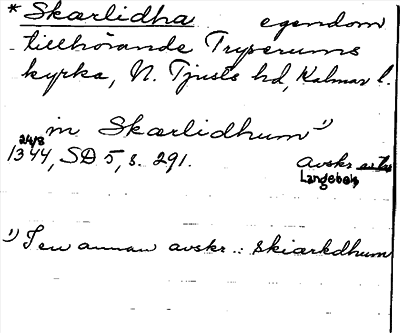 * Skærlidha egendom
tillhörande Tryserums
kyrka, N. Tjusts hd, Kalmar l.
in Skærlidhum 1)
24/8
1344, SD 5, s. 291. Avskr
Langebek
1) I en annan avskr.: Skiærkdhum